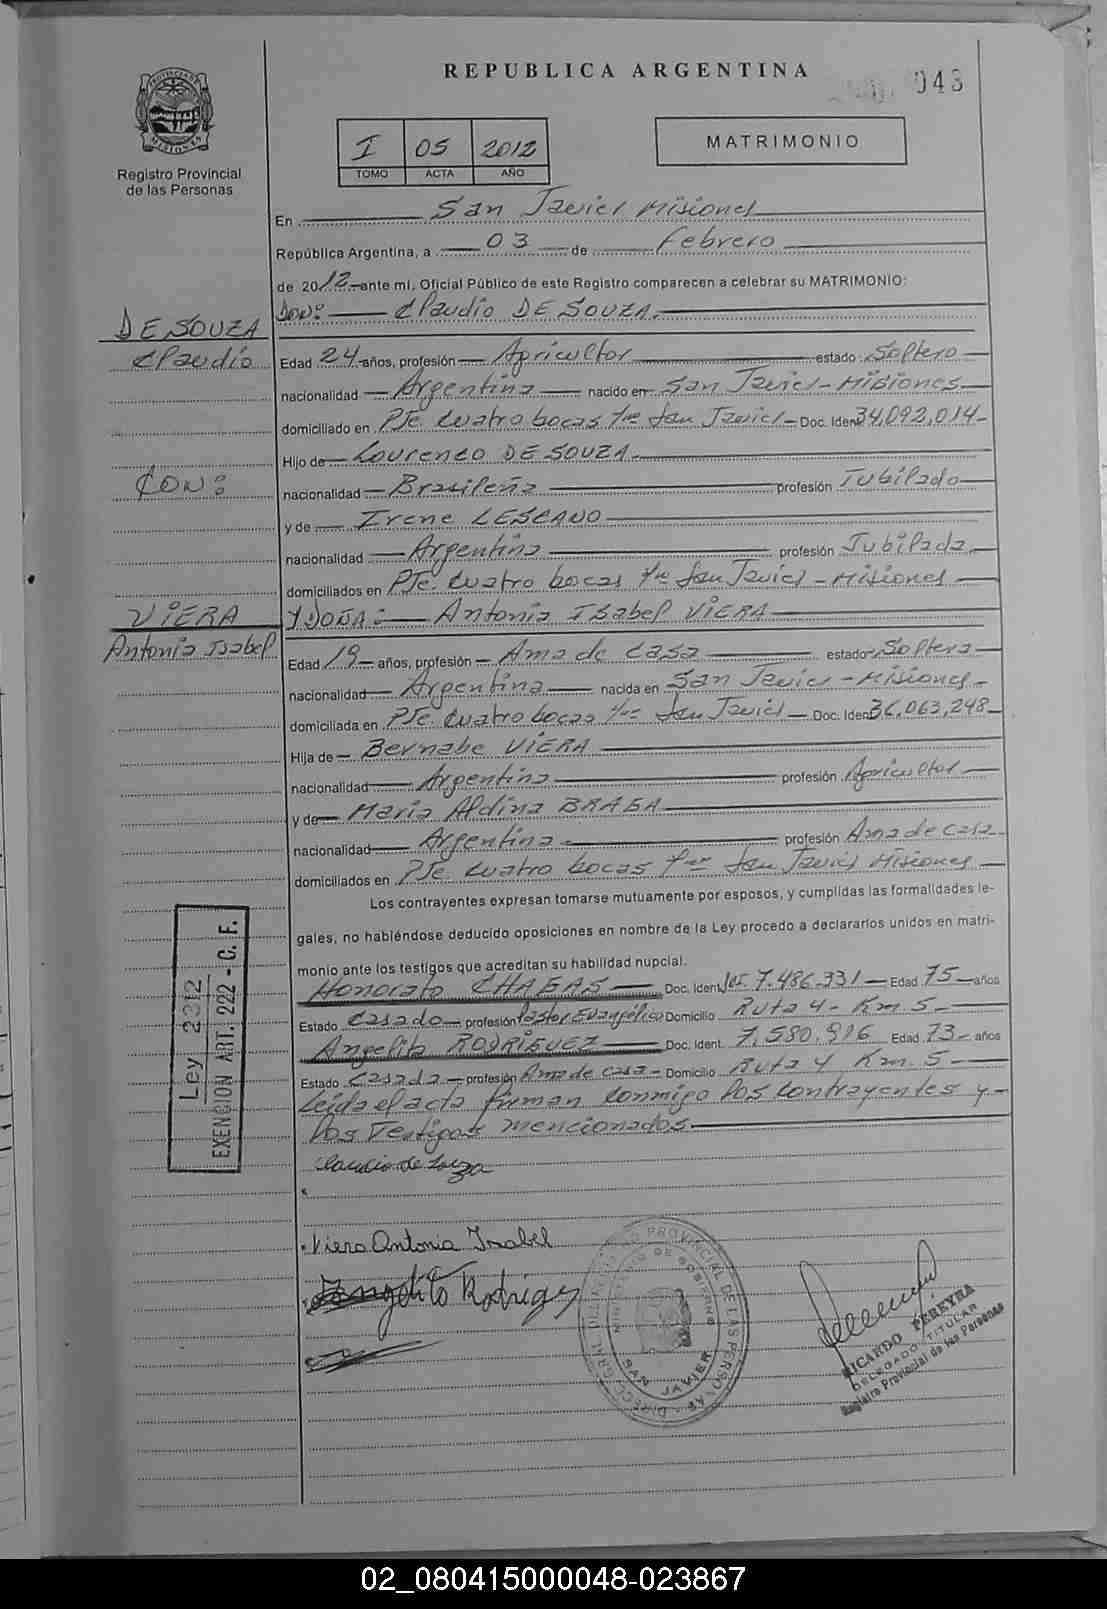 REPUBLICA ARGENTINA
043
PROVINCIA DE MISIONES
Registro Provincial
de las Personas
I 05 2012
TOMO ACTA AÑO
MATRIMONIO
En San Javier Misiones
República Argentina, a 03 de Febrero
de 2012 ante mí, Oficial Público de este Registro comparecen a celebrar su MATRIMONIO:
DON: Claudio DE SOUZA.
DE SOUZA
Claudio
Edad 24 años, profesión Agricultor estado Soltero
nacionalidad Argentina nacido en San Javier - Misiones
domiciliado en PJe. Cuatro bocas San Javier - Doc. Ident. 34.092.014
Hijo de Lourenco DE SOUZA.
CON:
nacionalidad Brasileña profesión Jubilado
y de Irene LESCANO
nacionalidad Argentina profesión Jubilada
domiciliados en PJe. Cuatro bocas San Javier - Misiones
VIERA
Antonia Isabel
Y DOÑA: Antonia Isabel VIERA
Edad 19 años, profesión Ama de Casa estado Soltera
nacionalidad Argentina nacida en San Javier - Misiones
domiciliada en PJe. Cuatro bocas San Javier - Doc. Ident. 36.063.248
Hija de Bernabe VIERA
nacionalidad Argentina profesión Agricultor
y de Maria Aldina BRAGA
nacionalidad Argentina profesión Ama de casa
domiciliados en PJe. Cuatro bocas San Javier Misiones
Los contrayentes expresan tomarse mutuamente por esposos, y cumplidas las formalidades le-
gales, no habiéndose deducido oposiciones en nombre de la Ley procedo a declararlos unidos en matri-
monio ante los testigos que acreditan su habilidad nupcial.
Honorato CHAGAS Doc. Ident. 7.486.331 Edad 75 años
Estado Casado profesión Pastor Evangélico Domicilio Ruta 4 - Km. 5
Angelita RODRIGUEZ Doc. Ident. 7.580.916 Edad 73 años
Estado Casada profesión Ama de casa Domicilio Ruta 4 Km. 5
Leida el acta firman conmigo los contrayentes y
los Testigos mencionados.
Ley 2312
EXENCION ART. 222 - C. F.
Claudio de Souza
Viera Antonia Isabel
Angelita Rodrigez
DIRECC. GRAL. DEL REGISTRO PROVINCIAL DE LAS PERSONAS
MINISTERIO DE GOBIERNO
SAN JAVIER
RICARDO PEREYRA
DELEGADO TITULAR
Registro Provincial de las Personas
02_080415000048-023867